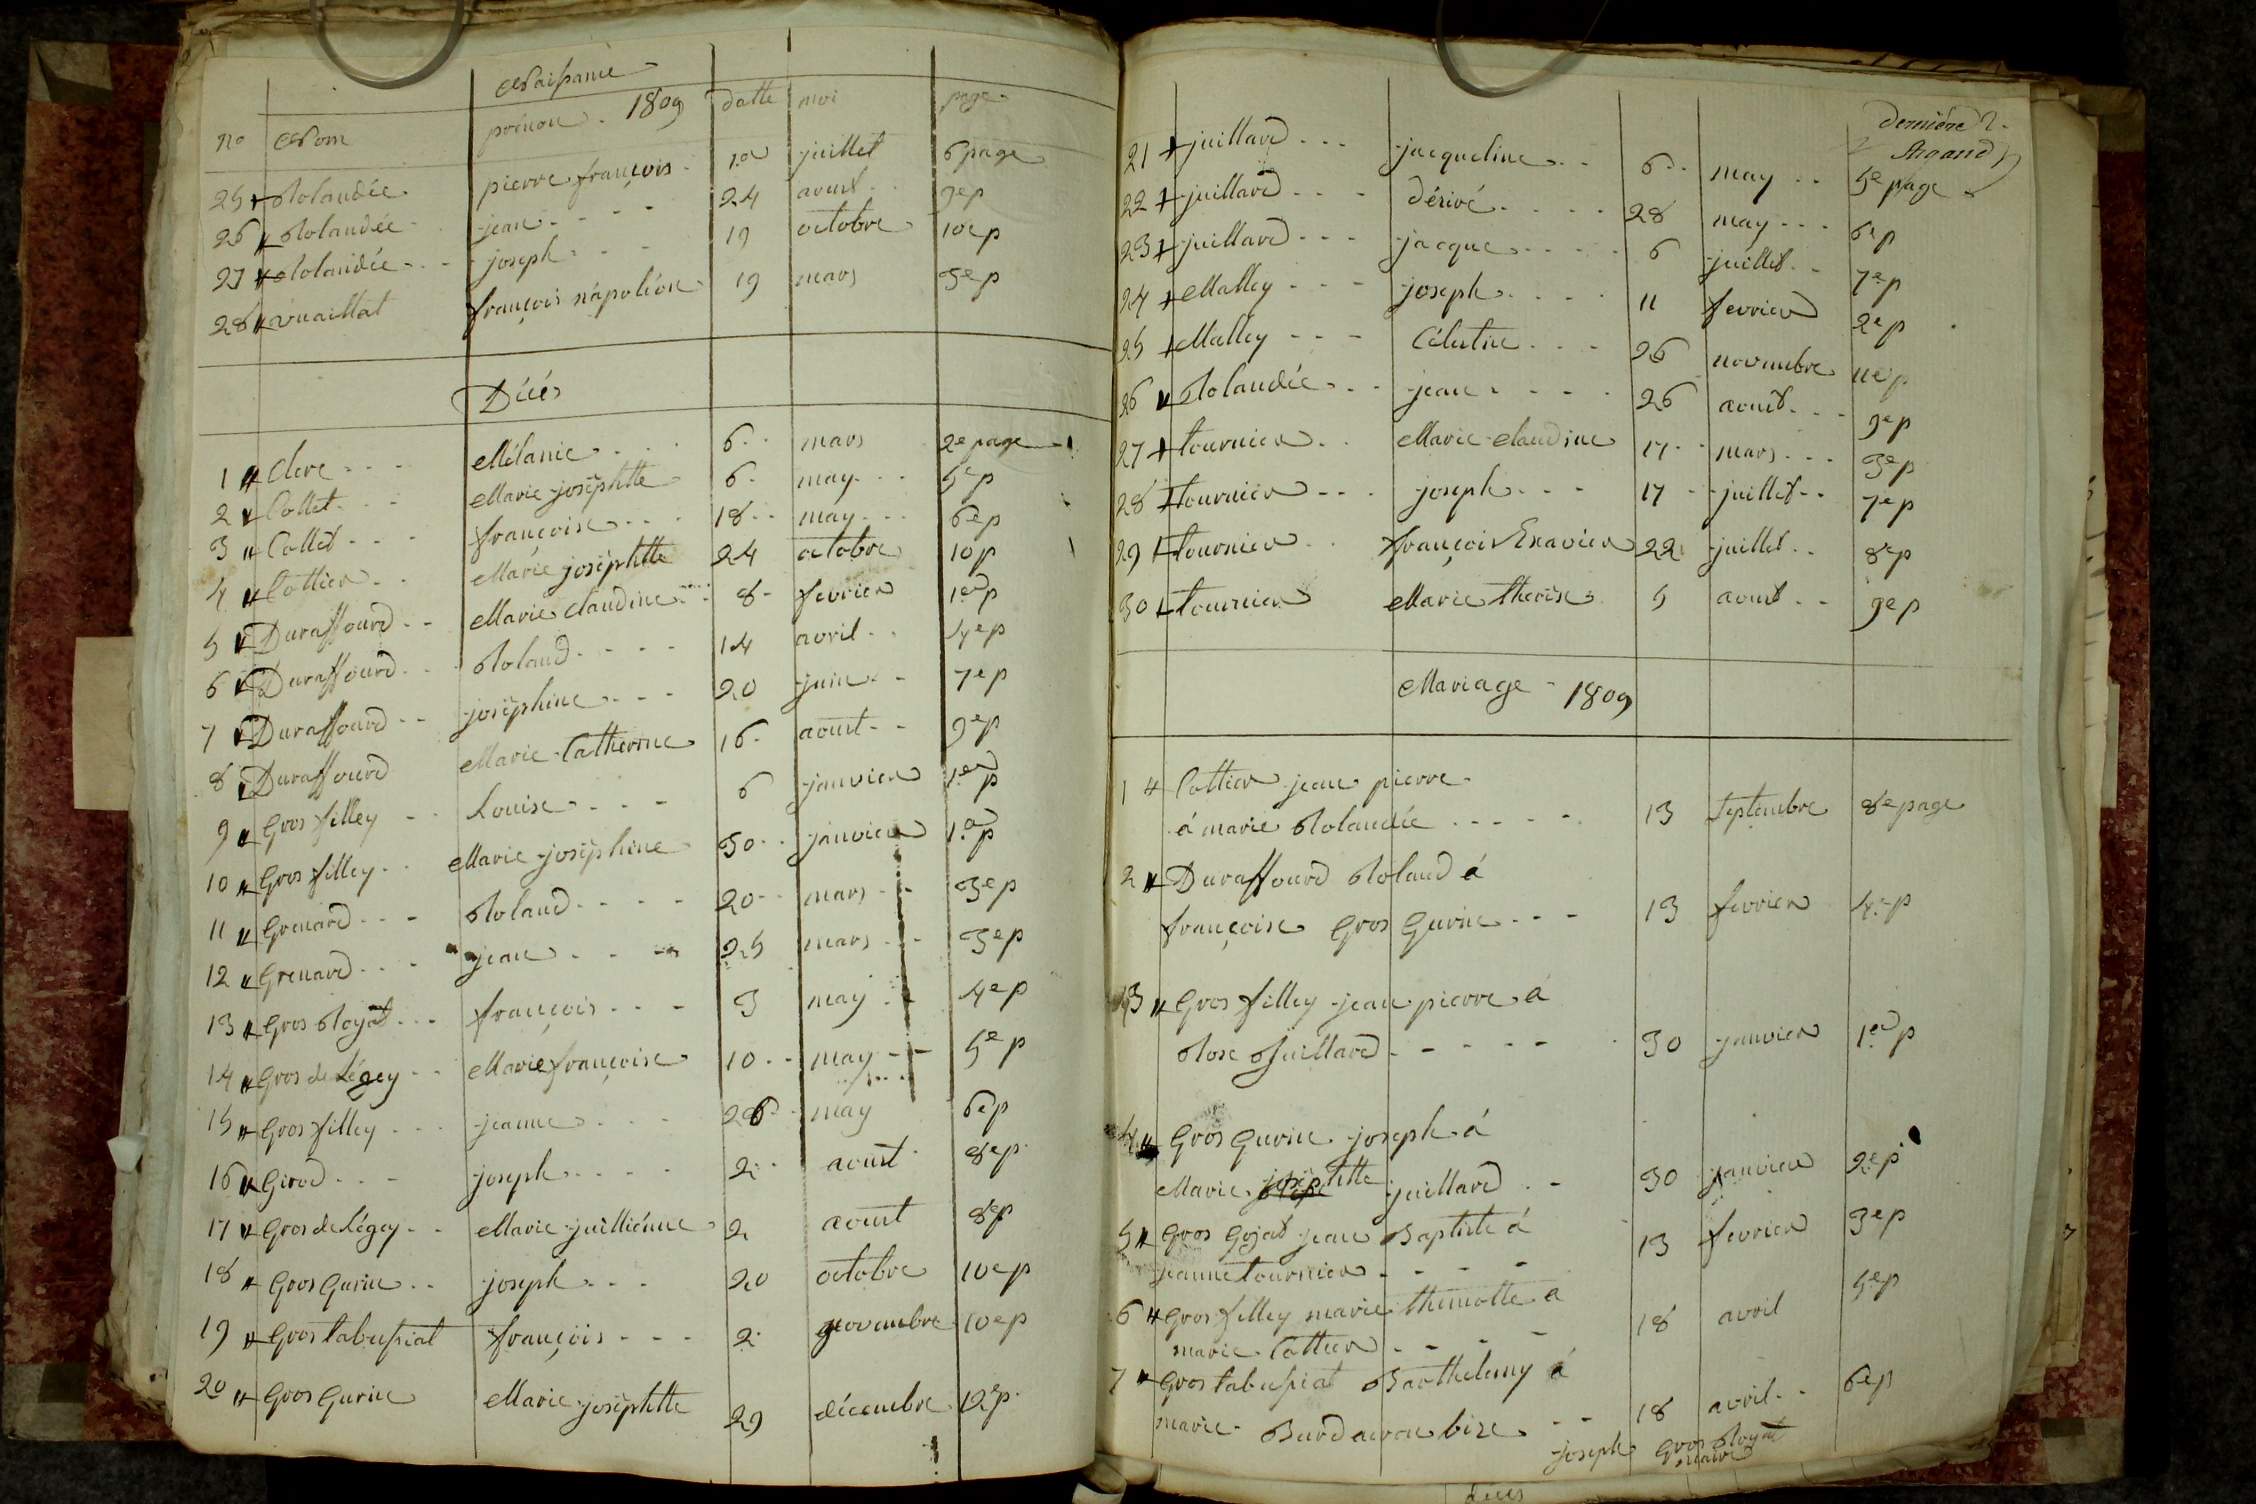 Naissance
no Nom prénom . 1809 datte moi page
25 Rolandée pierre françois 1er juillet 6 page
26 Rolandée jean 24 aoust 9e p
27 Rolandée joseph 19 octobre 10e p
28 vuaillat françois népoléon 19 mars 3e p
Décés
1 Clerc Mélanie 6 mars 2e page
2 Collet Marie josephtte 6 may 5e p
3 Collet françoise 18 may 6e p
4 Cottier Marie josephtte 24 octobre 10 p
5 Duraffourd Marie claudine 8 fevrier 1er p
6 Duraffourd Roland 14 avril 4e p
7 Duraffourd josephine 20 juin 7e p
8 Duraffourd Marie Catherine 16 aoust 9e p
9 Gros filley Louise 6 janvier 1er p
10 Gros filley Marie josephine 30 janvier 1er p
11 Grenard Roland 20 mars 3e p
12 Grenard jean 25 mars 3e p
13 Gros Royat françois 3 may 4e p
14 Gros de Légey Marie françoise 10 may 5e p
15 Gros filley jeanne 26 may 6e p
16 Girod joseph 2 aoust 8e p
17 Gros de Légey Marie juillienne 2 aoust 8e p
18 Gros Gurin joseph 20 octobre 10e p
19 Gros tabussiat françois 2 novembre 10e p
20 Gros Gurin Marie josephtte 29 décembre 12e p
dernière
21 juillard jacqueline 6 may 5e page
22 juillard dérivé 28 may 6e p
23 juillard jacque 6 juillet 7e p
24 Malley joseph 11 fevrier 2e p
25 Malley Célestine 26 novembre 11e p
26 Rolandée jean 26 aoust 9e p
27 tournier Marie claudine 17 mars 3e p
28 tournier joseph 17 juillet 7e p
29 tournier françois Exavier 22 juillet 8e p
30 tournier Marie therese 5 aoust 9e p
Mariage 1809
1 Cottier jean pierre
á marie Rolandée 13 septembre 8e page
2 Duraffourd Roland á
françoise Gros Gurin 13 fevrier 4e p
3 Gros filley jean pierre á
Rose Juillard 30 janvier 1er p
4 Gros Gurin joseph á
Marie josephtte juillard 30 janvier 2e p
5 Gros Gojat jean Baptiste á 13 fevrier 3e p
jeanne tournier
6 Gros filley marie thimotte a 18 avril 5e p
marie Cottier
7 Gros tabussiat Barthelemy á
marie Burdairon bize 18 avril 6e p
joseph Gros Royat
maire